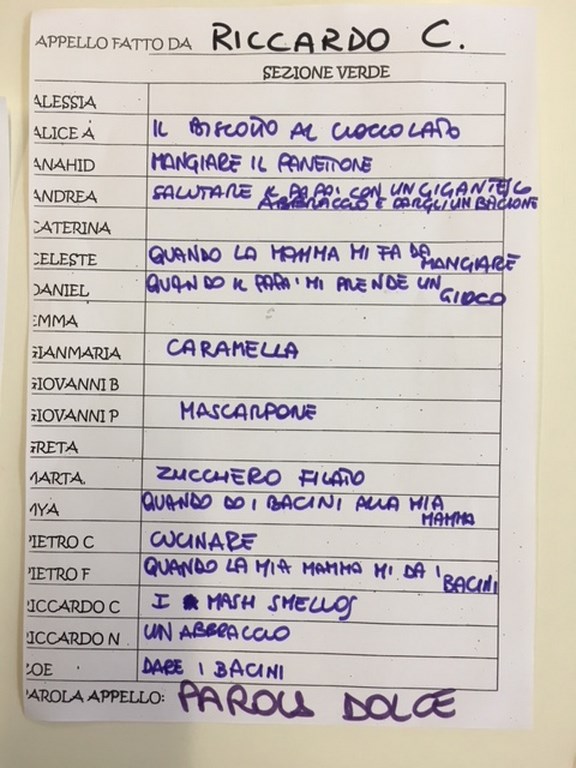 APPELLO FATTO DA RICCARDO C.
SEZIONE VERDE
ALESSIA
ALICE A IL BISCOTTO AL CIOCCOLATO
ANAHID MANGIARE IL PANETTONE
ANDREA SALUTARE IL PAPA' CON UN GIGANTESCO
ABBRACCIO E DARGLI UN BACIONE
CATERINA
CELESTE QUANDO LA MAMMA MI FA DA
MANGIARE
DANIEL QUANDO IL PAPA' MI PRENDE UN
GIOCO
EMMA
GIANMARIA CARAMELLA
GIOVANNI B
GIOVANNI P MASCARPONE
GRETA
MARTA ZUCCHERO FILATO
MYA QUANDO DO I BACINI ALLA MIA
MAMMA
PIETRO C CUCINARE
PIETRO F QUANDO LA MIA MAMMA MI DA I
BACINI
RICCARDO C I MASH SMELLOS
RICCARDO N UN ABBRACCIO
ZOE DARE I BACINI
PAROLA APPELLO: PAROLA DOLCE